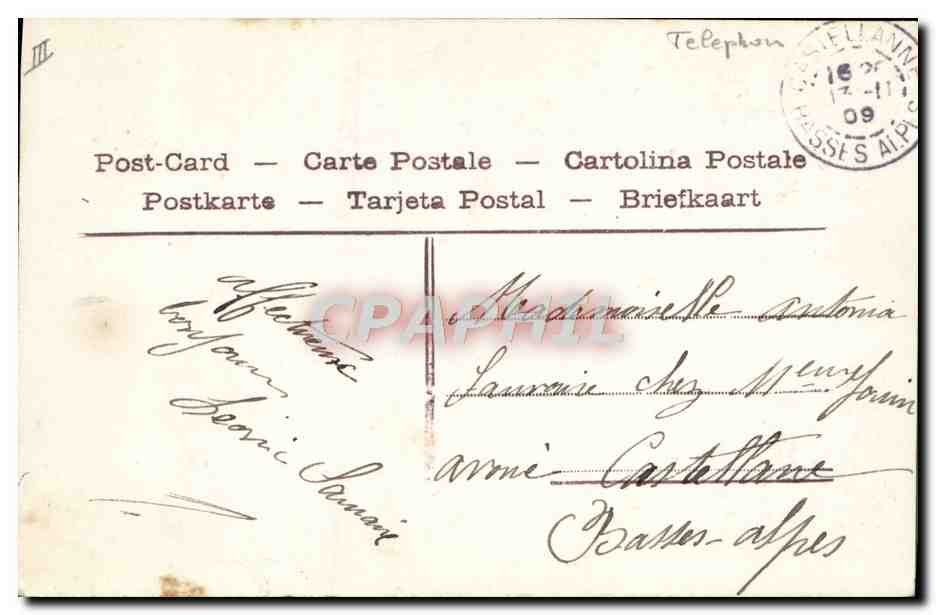 III
Telephon
CASTELLANNE
16
13 -11
09
BASSES ALPES
Post-Card — Carte Postale — Cartolina Postale
Postkarte — Tarjeta Postal — Briefkaart
affectueux
bonjour
Leonie
CPAPHIL
Mademoiselle antonia
chez
avoué Castellane
Basses-alpes